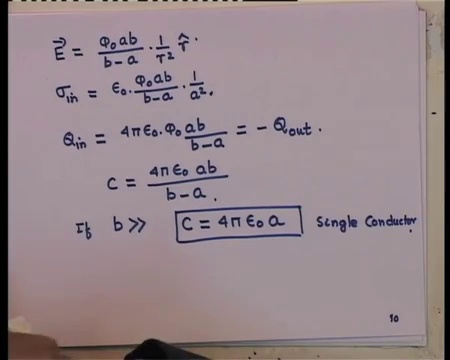 E⃗ = φ₀ab/(b-a) · 1/r² r̂.
σin = ε₀ · φ₀ab/(b-a) · 1/a².
Qin = 4πε₀ · φ₀ ab/(b-a) = - Qout.
C = 4πε₀ ab/(b-a).
If b >> C = 4πε₀ a Single Conductor.
10